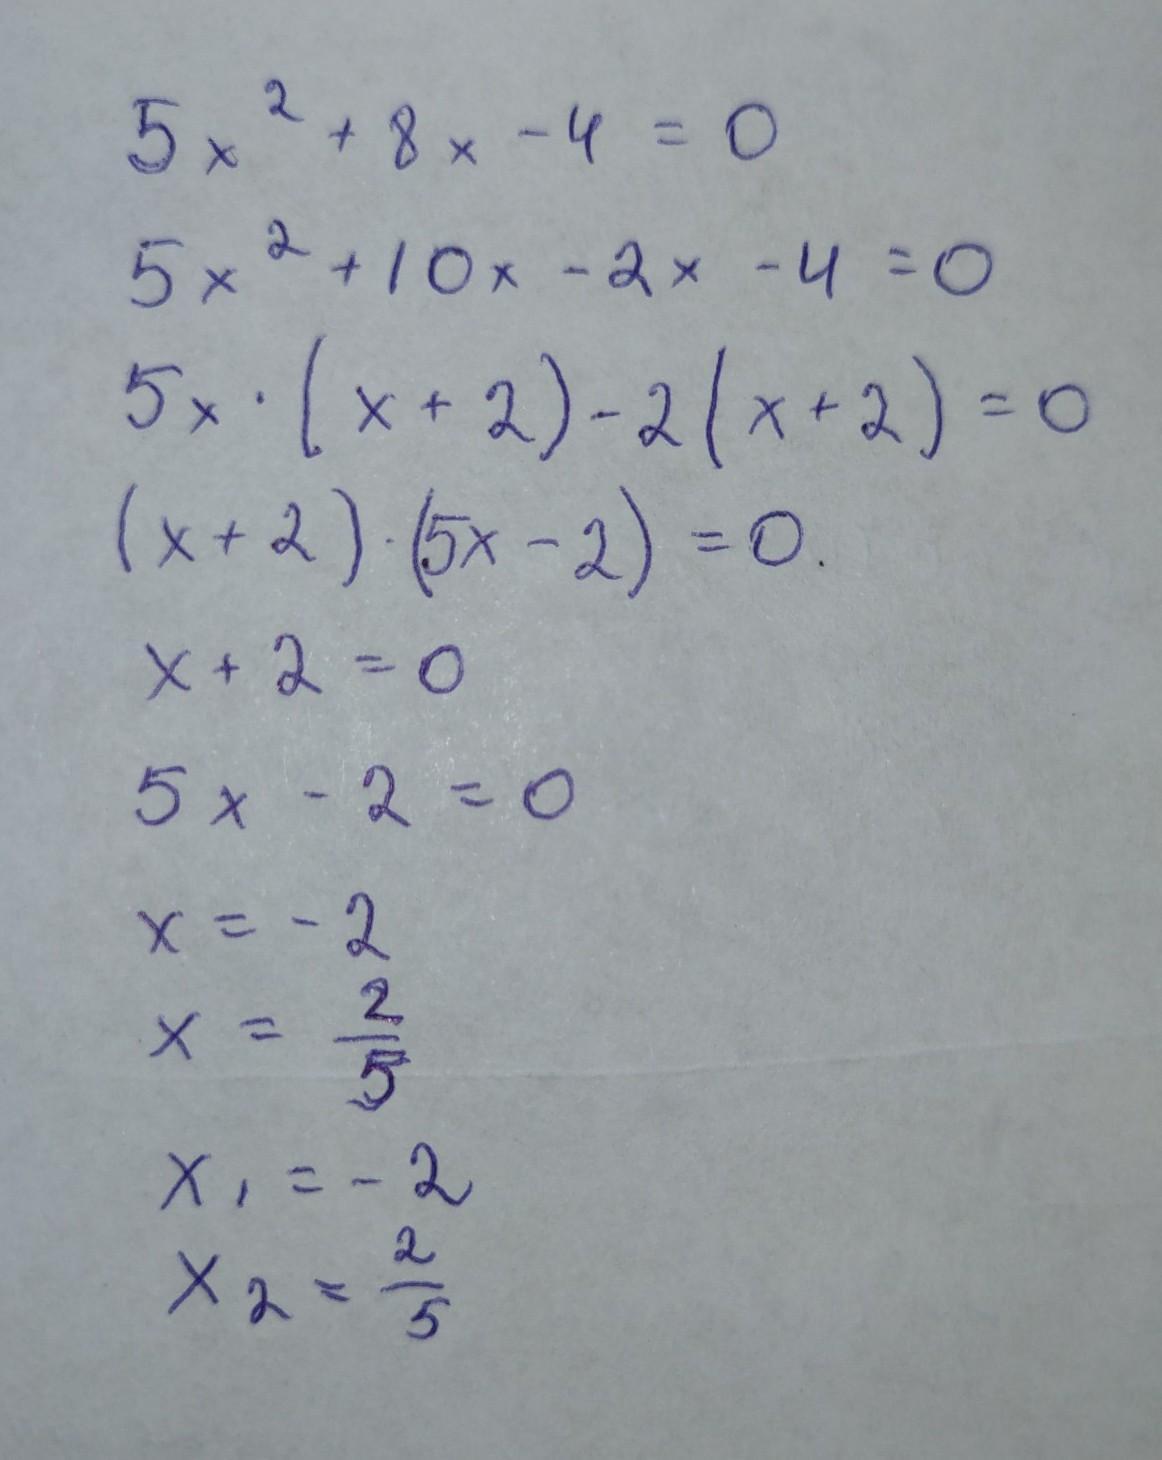 5x² + 8x - 4 = 0
5x² + 10x - 2x - 4 = 0
5x · (x + 2) - 2(x + 2) = 0
(x + 2) · (5x - 2) = 0.
x + 2 = 0
5x - 2 = 0
x = - 2
x = 2/5
x₁ = - 2
x₂ = 2/5